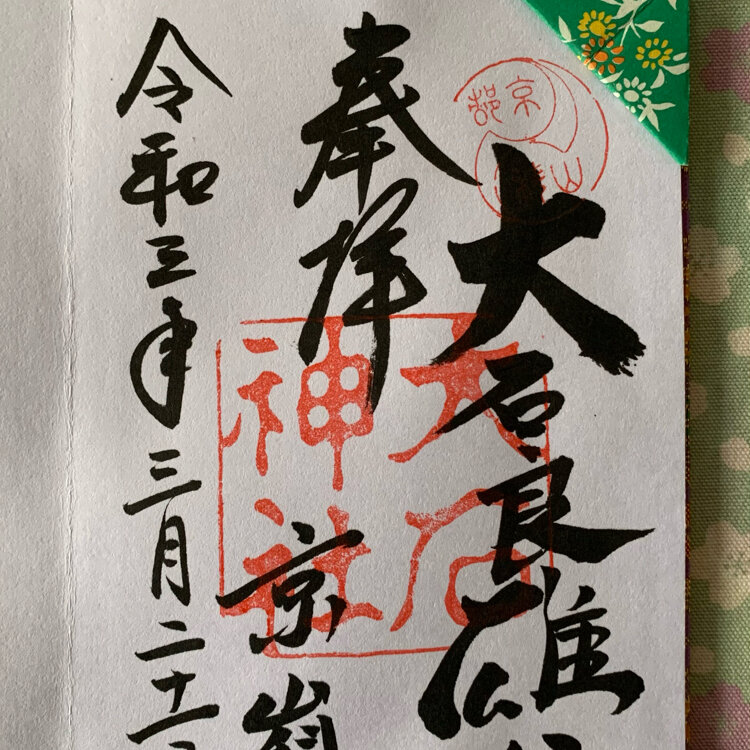 京都
山科
大石良雄
奉拝
大石
神社
京
山科
令和三年三月二十一